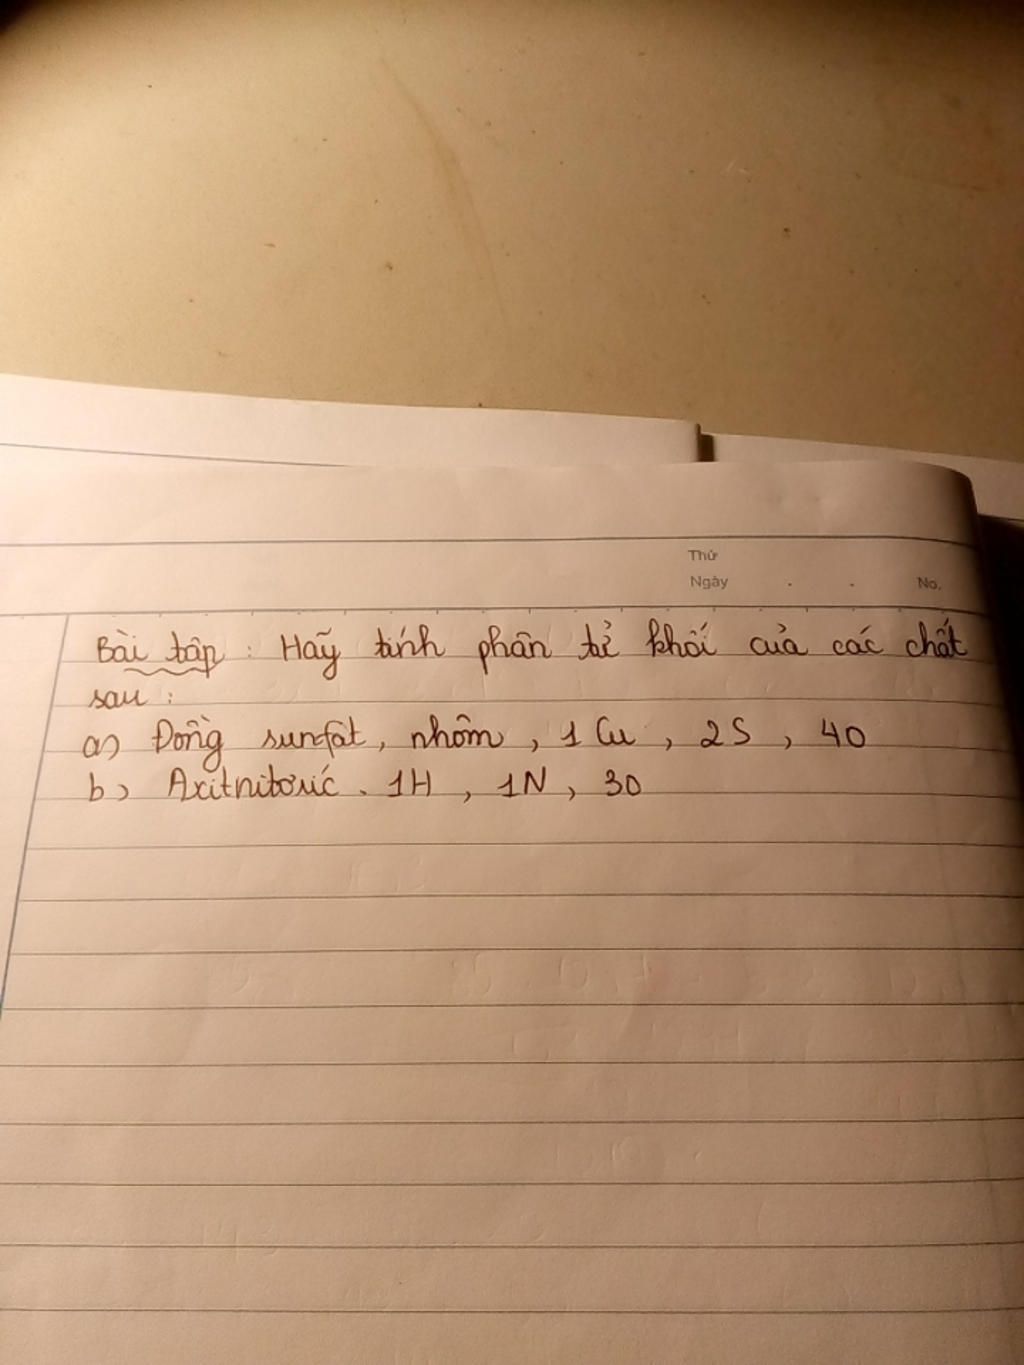 Thứ
Ngày . . No.
Bài tập : Hãy tính phân tử khối của các chất
sau :
a) Đồng sunfat, nhôm, 1 Cu, 2S, 4O
b) Axitnitơric. 1H, 1N, 3O